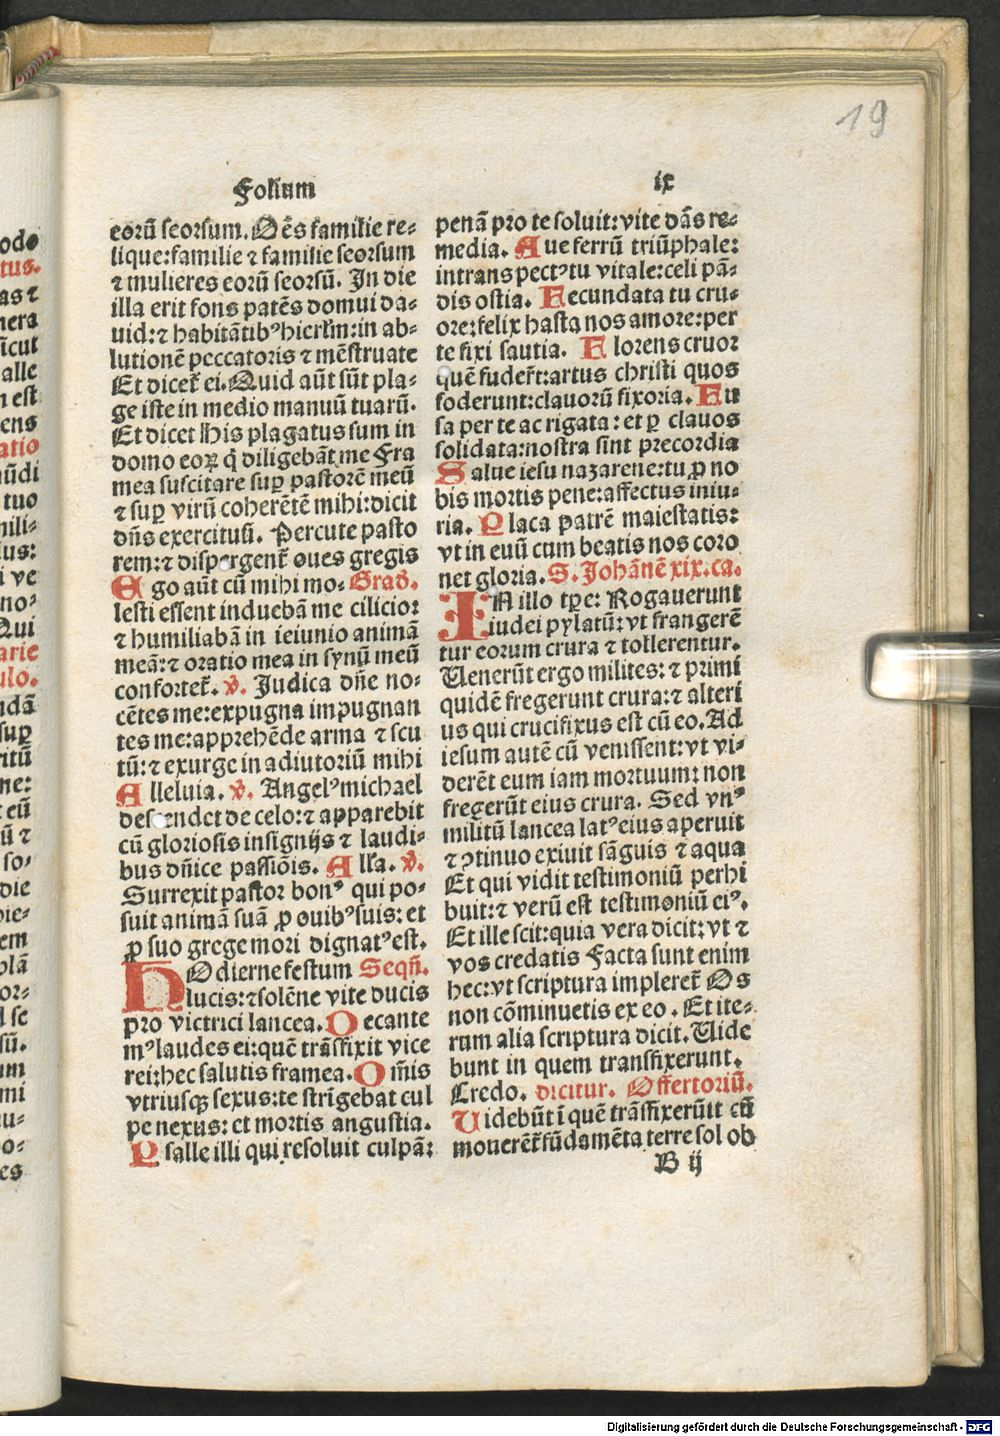 19
Folium ix
eorū seorsum. Om̄s familie re-
lique: familie ⁊ familie seorsum
⁊ mulieres eorū seorsū. In die
illa erit fons patēs domui da-
uid: ⁊ habitātibꝰ hierlm̄: in ab-
lutionē peccatoris ⁊ mēstruate
Et dicet̄ ei. Quid aūt sūt pla-
ge iste in medio manuū tuarū.
Et dicet His plagatus sum in
domo eoꝝ q̄ diligebāt me Fra
mea suscitare suꝑ pastorē meū
⁊ suꝑ virū coherētē mihi: dicit
dn̄s exercitusū. Percute pasto
rem: ⁊ dispergent̄ oues gregis
Ego aūt cū mihi mo- Grad.
lesti essent induebā me cilicio:
⁊ humiliabā in ieiunio animā
meā: ⁊ oratio mea in synū meū
confortet̄. ꝟ. Judica dn̄e no-
cētes me: expugna impugnan
tes me: apprehēde arma ⁊ scu
tū: ⁊ exurge in adiutoriū mihi
Alleluia. ꝟ. Angelꝰ michael
descendet de celo: ⁊ apparebit
cū gloriosis insignijs ⁊ laudi-
bus dn̄ice passiōis. Alla. ꝟ.
Surrexit pastor bonꝰ qui po-
suit animā suā ꝓ ouibꝰ suis: et
ꝓ suo grege mori dignatꝰ est.
HOdierne festum Seqn̄.
lucis: ⁊ solēne vite ducis
pro victrici lancea. Decante
mꝰ laudes ei: quē trāsfixit vice
rei: hec salutis framea. Om̄is
vtriusqꝫ sexus: te strīgebat cul
pe nexus: et mortis angustia.
Psalle illi qui resoluit culpā:
penā pro te soluit: vite dās re-
media. Aue ferrū triūphale:
intrans pectꝰ tu vitale: celi pā-
dis ostia. Fecundata tu cru-
ore: felix hasta nos amore: per
te fixi sautia. Florens cruor
quē fuder̄t: artus christi quos
foderunt: clauorū fixoria. Fu
sa per te ac rigata: et ꝑ clauos
solidata: nostra sint precordia
Salue iesu nazarene: tu ꝓ no
bis mortis pene: affectus iniu-
ria. Placa patrē maiestatis:
vt in euū cum beatis nos coro
net gloria. S. Johānē xix. ca.
IN illo tp̄e: Rogauerunt
iudei pylatū: vt frangerē
tur eorum crura ⁊ tollerentur.
Uenerūt ergo milites: ⁊ primi
quidē fregerunt crura: ⁊ alteri
us qui crucifixus est cū eo. Ad
iesum autē cū venissent: vt vi-
derēt eum iam mortuum: non
fregerūt eius crura. Sed vnꝰ
militū lancea latꝰ eius aperuit
⁊ ꝯtinuo exiuit sāguis ⁊ aqua
Et qui vidit testimoniū perhi
buit: ⁊ verū est testimoniū eiꝰ.
Et ille scit: quia vera dicit: vt ⁊
vos credatis Facta sunt enim
hec: vt scriptura impleret̄ Os
non cōminuetis ex eo. Et ite-
rum alia scriptura dicit. Uide
bunt in quem transfixerunt.
Credo. dicitur. Offertoriū.
Uidebūt ī quē trāsfixerūt cū
mouerēt̄ fūdamēta terre sol ob
B ij
Digitalisierung gefördert durch die Deutsche Forschungsgemeinschaft - DFG